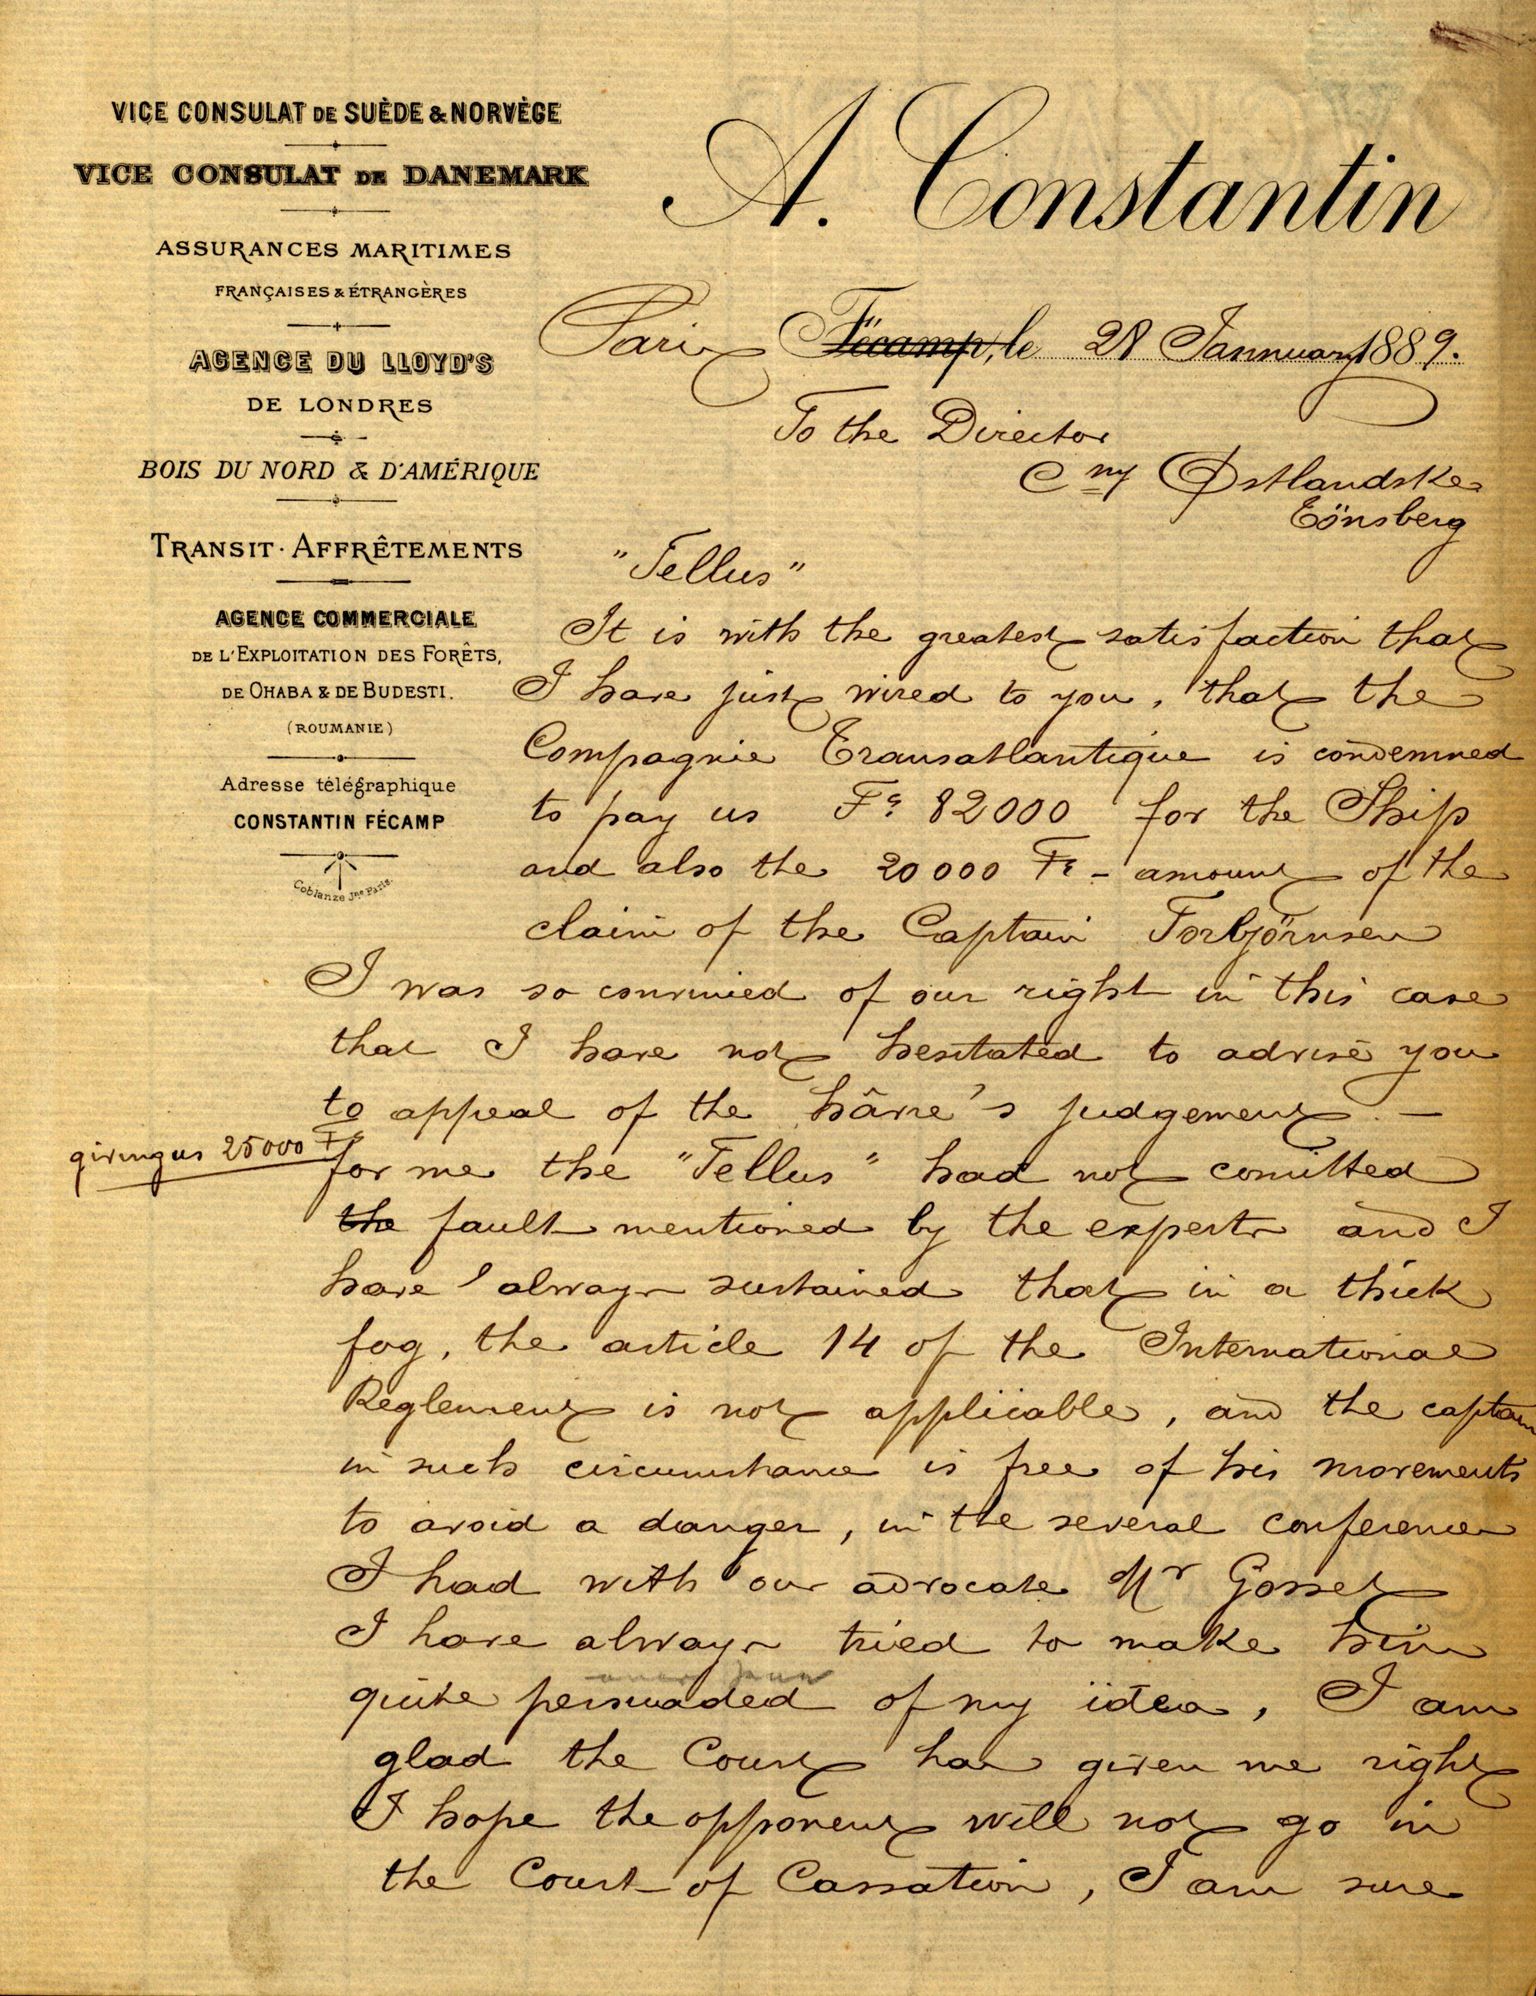 VICE CONSULAT DE SUÈDE & NORVÈGE
VICE CONSULAT DE DANEMARK
ASSURANCES MARITIMES
FRANÇAISES & ÉTRANGÈRES
AGENCE DU LLOYD'S
DE LONDRES
BOIS DU NORD & D'AMÉRIQUE
TRANSIT · AFFRÊTEMENTS
AGENCE COMMERCIALE
DE L'EXPLOITATION DES FORÊTS,
DE OHABA & DE BUDESTI.
(ROUMANIE)
Adresse télégraphique
CONSTANTIN FÉCAMP
Coblanze Jne Paris.
A. Constantin
Paris Fécamp, le 28 Jannuary 1889.
To the Director
Cny Østlandske
Tönsberg
"Tellus"
It is with the greatest satisfaction that
I have just wired to you, that the
Compagnie Transatlantique is condemned
to pay us Fcs 82000 for the Ship
and also the 20000 Fr - amount of the
claim of the Captain Torbjörnsen
I was so convinied of our right in this case
that I have not hesitated to advise you
to appeal of the hâvre's judgement. -
giving us 25000 Fr
for me the "Tellus" had not comitted
the fault mentioned by the experts and I
have always sustained that in a thick
fog, the article 14 of the International
Reglement is not applicable, and the captain
in such circumstance is free of his movements
to avoid a danger, in the several conferences
I had with our advocate Mr Gosset
I have always tried to make him
quite persuaded of my idea, I am
glad the Court has given me right
I hope the opponent will not go in
the Court of Cassation, I am sure